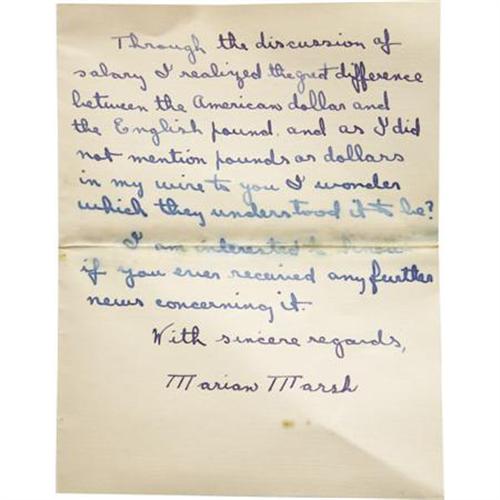 Through the discussion of
salary I realized the gret difference
between the American dollar and
the English pound. and as I did
not mention pounds or dollars
in my wire to you I wonder
which they understood it to be?
I am interested to know
if you ever received any further
news concerning it.
With sincere regards,
Marian Marsh